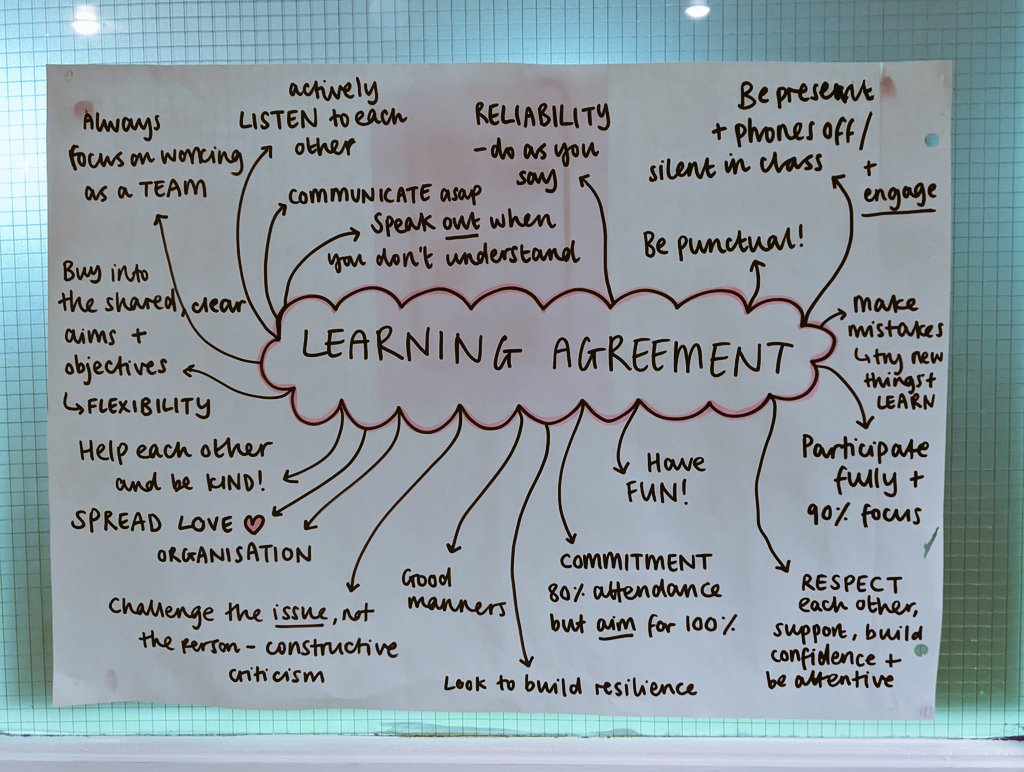 LEARNING AGREEMENT
Always
focus on working
as a TEAM
actively
LISTEN to each
other
COMMUNICATE asap
Speak out when
you don't understand
RELIABILITY
- do as you
say
Be present
+ phones off/
silent in class
+
engage
Be punctual!
make
mistakes
↳ try new
things +
LEARN
Participate
fully +
90% focus
RESPECT
each other,
support, build
confidence +
be attentive
Have
FUN!
COMMITMENT
80% attendance
but aim for 100%
Look to build resilience
Good
manners
Challenge the issue, not
the person - constructive
criticism
ORGANISATION
SPREAD LOVE ♥
Help each other
and be KIND!
Buy into
the shared, clear
aims +
objectives
↳ FLEXIBILITY